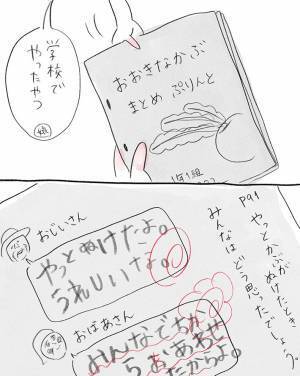 学校で
やったやつ
娘
おおきなかぶ
まとめ ぷりんと
1年1組
P91
やっとかぶがぬけたとき、
みんなはどう思ったでしょう。
おじいさん
やっとぬけたよ。
うれしいな。
おばあさん
みんなでちか
らをあわせ
たからよ。